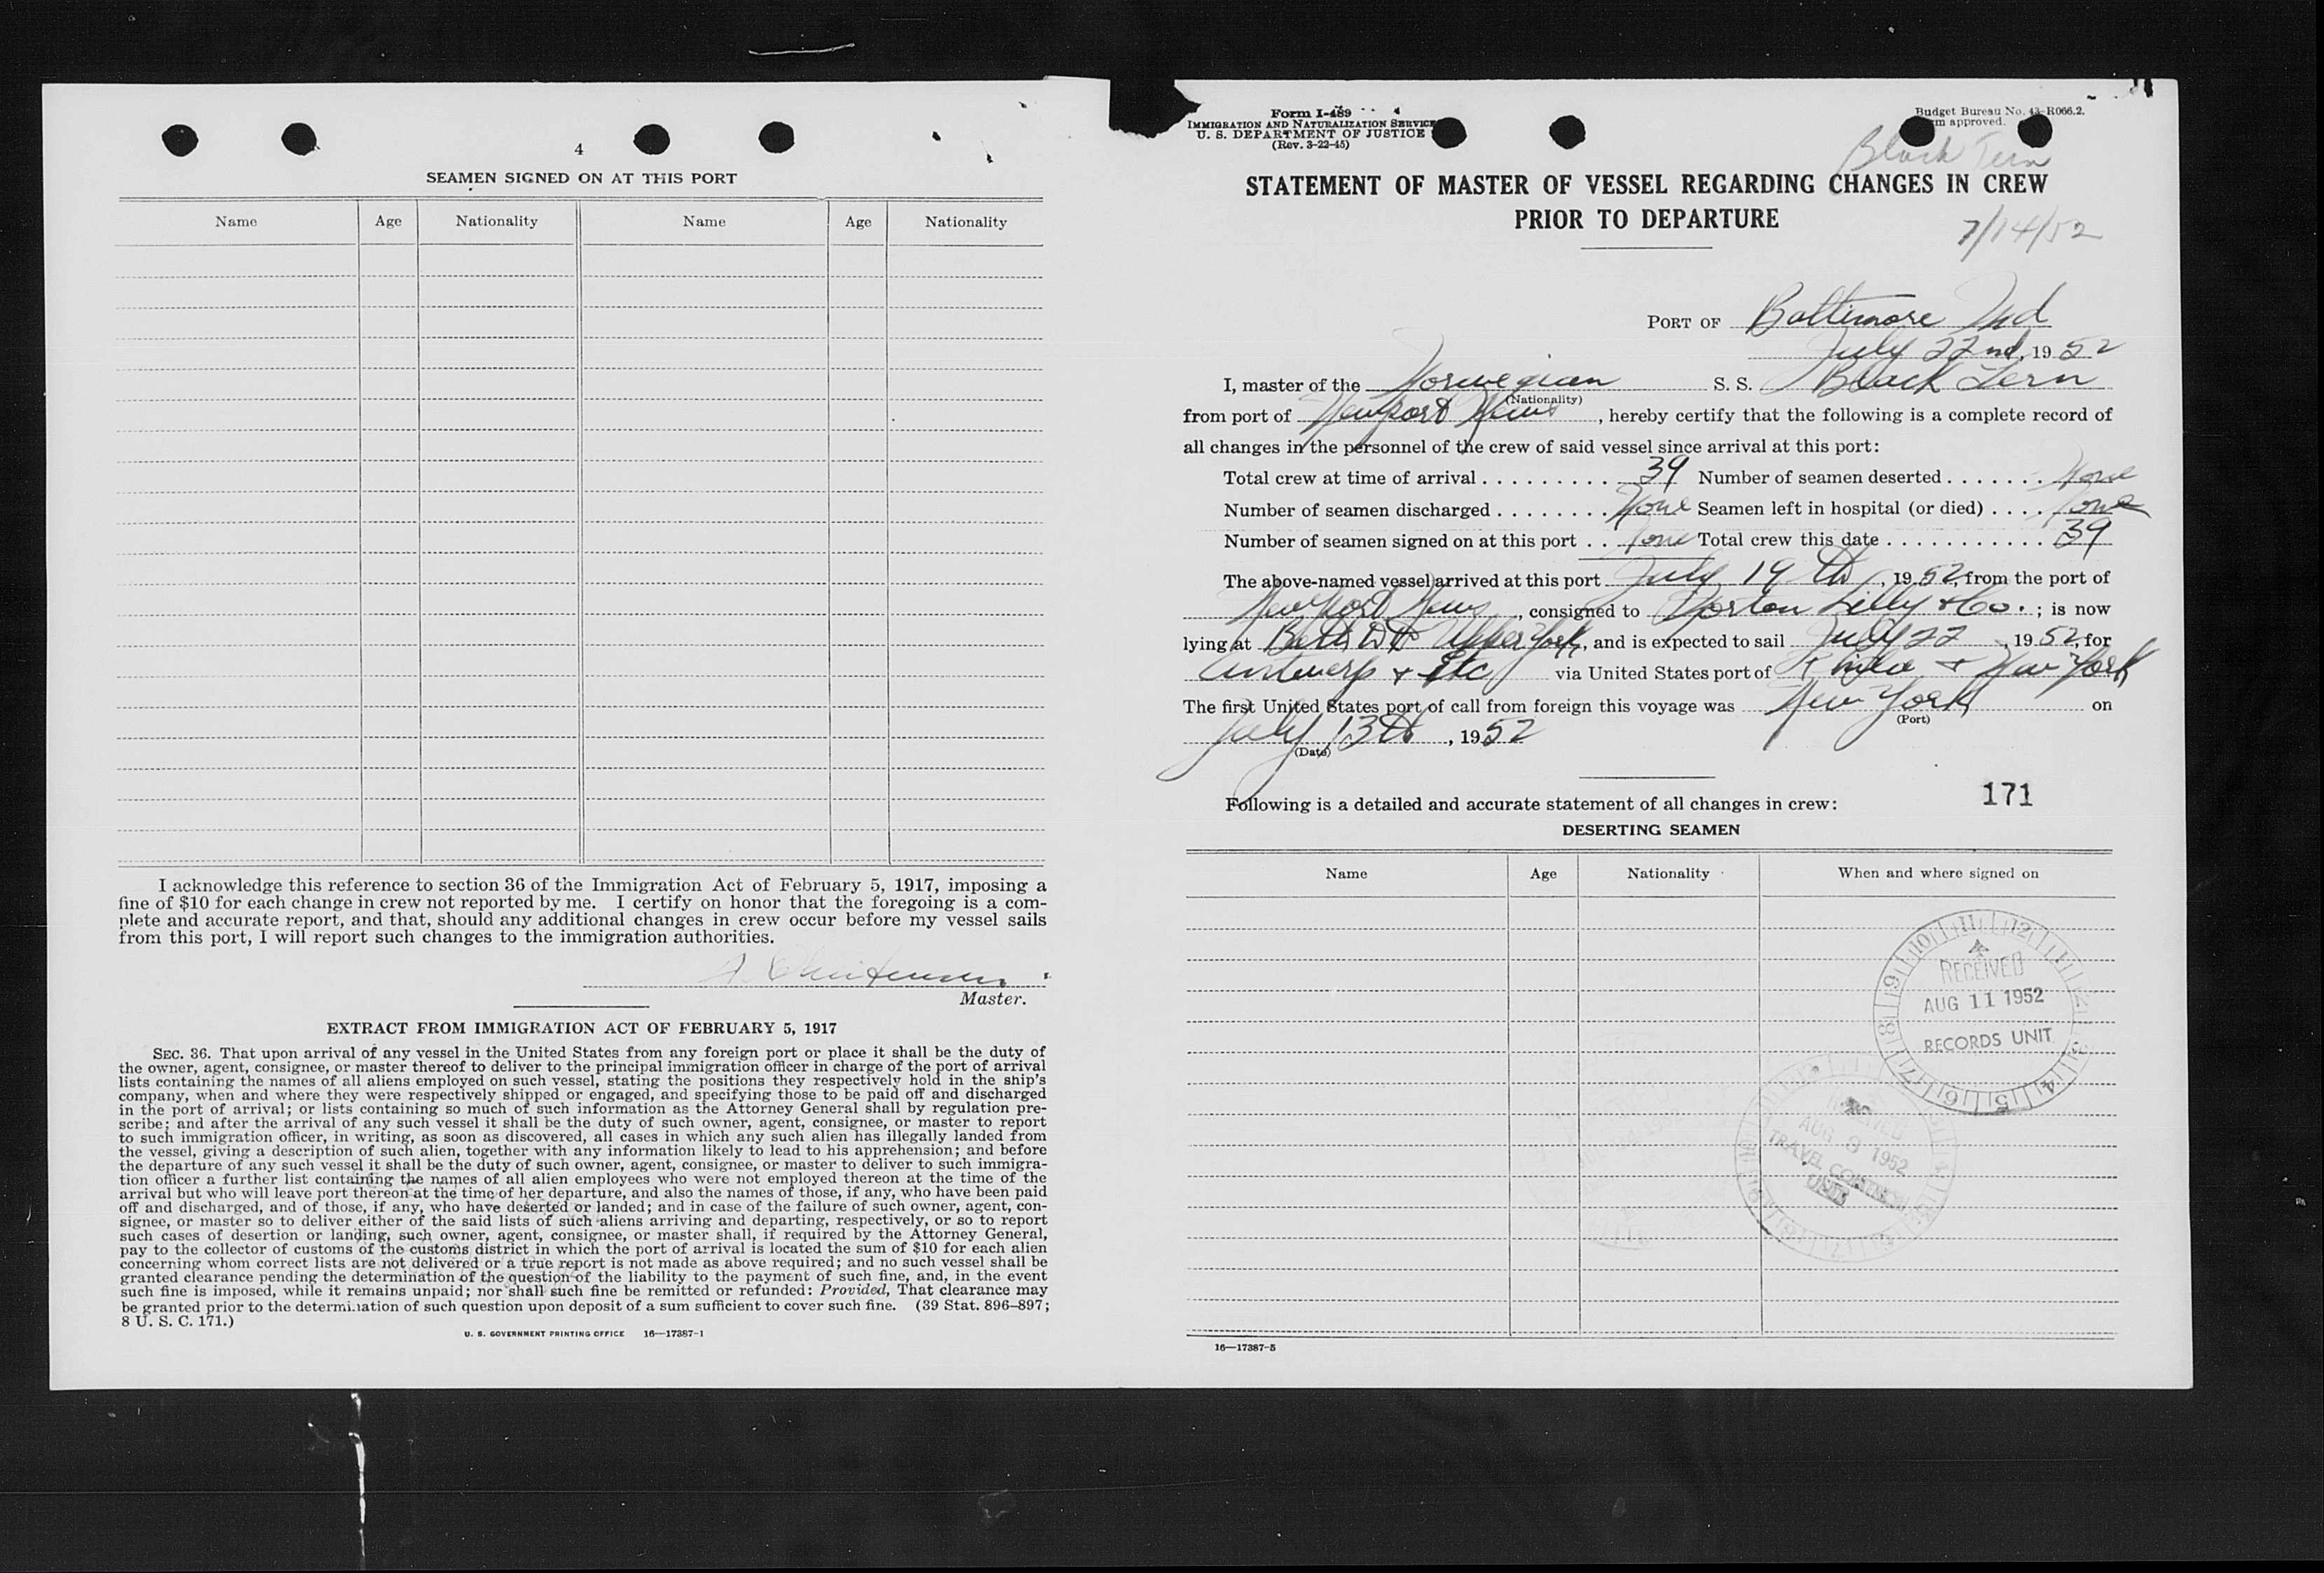 4
SEAMEN SIGNED ON AT THIS PORT
Name Age Nationality Name Age Nationality
I acknowledge this reference to section 36 of the Immigration Act of February 5, 1917, imposing a
fine of $10 for each change in crew not reported by me. I certify on honor that the foregoing is a com-
plete and accurate report, and that, should any additional changes in crew occur before my vessel sails
from this port, I will report such changes to the immigration authorities.
Master.
EXTRACT FROM IMMIGRATION ACT OF FEBRUARY 5, 1917
SEC. 36. That upon arrival of any vessel in the United States from any foreign port or place it shall be the duty of
the owner, agent, consignee, or master thereof to deliver to the principal immigration officer in charge of the port of arrival
lists containing the names of all aliens employed on such vessel, stating the positions they respectively hold in the ship's
company, when and where they were respectively shipped or engaged, and specifying those to be paid off and discharged
in the port of arrival; or lists containing so much of such information as the Attorney General shall by regulation pre-
scribe; and after the arrival of any such vessel it shall be the duty of such owner, agent, consignee, or master to report
to such immigration officer, in writing, as soon as discovered, all cases in which any such alien has illegally landed from
the vessel, giving a description of such alien, together with any information likely to lead to his apprehension; and before
the departure of any such vessel it shall be the duty of such owner, agent, consignee, or master to deliver to such immigra-
tion officer a further list containing the names of all alien employees who were not employed thereon at the time of the
arrival but who will leave port thereon at the time of her departure, and also the names of those, if any, who have been paid
off and discharged, and of those, if any, who have deserted or landed; and in case of the failure of such owner, agent, con-
signee, or master so to deliver either of the said lists of such aliens arriving and departing, respectively, or so to report
such cases of desertion or landing, such owner, agent, consignee, or master shall, if required by the Attorney General,
pay to the collector of customs of the customs district in which the port of arrival is located the sum of $10 for each alien
concerning whom correct lists are not delivered or a true report is not made as above required; and no such vessel shall be
granted clearance pending the determination of the question of the liability to the payment of such fine, and, in the event
such fine is imposed, while it remains unpaid; nor shall such fine be remitted or refunded: Provided, That clearance may
be granted prior to the determination of such question upon deposit of a sum sufficient to cover such fine. (39 Stat. 896–897;
8 U. S. C. 171.)
U. S. GOVERNMENT PRINTING OFFICE 16—17387-1
Form I-489
IMMIGRATION AND NATURALIZATION SERVICE
U. S. DEPARTMENT OF JUSTICE
(Rev. 3-22-45)
Budget Bureau No. 43-R066.2.
approved.
Black Tern
STATEMENT OF MASTER OF VESSEL REGARDING CHANGES IN CREW
PRIOR TO DEPARTURE
7/14/52
PORT OF Baltimore Md
July 22nd, 1952
I, master of the Norwegian S. S. Black Tern
(Nationality)
from port of Newport News, hereby certify that the following is a complete record of
all changes in the personnel of the crew of said vessel since arrival at this port:
Total crew at time of arrival 39 Number of seamen deserted None
Number of seamen discharged None Seamen left in hospital (or died) None
Number of seamen signed on at this port None Total crew this date 39
The above-named vessel arrived at this port July 19th, 1952, from the port of
Newport News, consigned to Norton Lilly & Co.; is now
lying at and is expected to sail July 22, 1952, for
Antwerp + Etc via United States port of Phila + New York
The first United States port of call from foreign this voyage was New York on
(Port)
July 13th, 1952
(Date)
Following is a detailed and accurate statement of all changes in crew:
171
DESERTING SEAMEN
Name Age Nationality When and where signed on
RECEIVED
AUG 11 1952
RECORDS UNIT
RECEIVED
AUG 8 1952
TRAVEL CONTROL
UNIT
16—17387-5